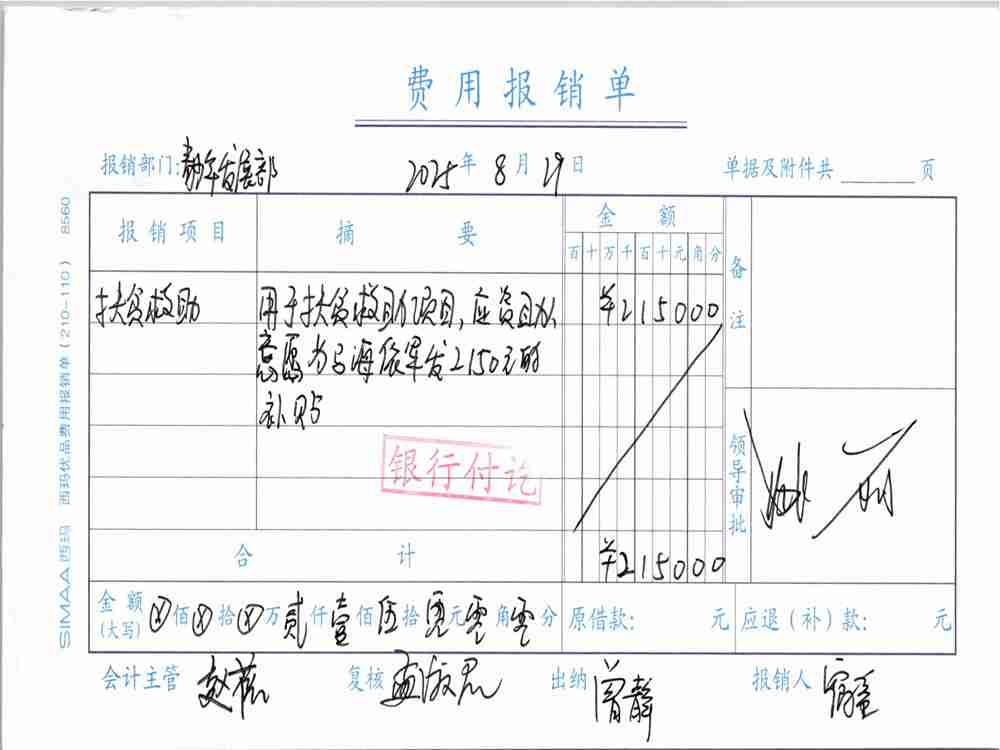 费用报销单
报销部门: 青年发展部 2025年 8月 29日 单据及附件共 页
报销项目 摘要 金额 备注
百十万千百十元角分
扶贫救助 用于扶贫救助项目,应资助人 ¥215000
意愿为马海依军发2150元的
补贴
银行付讫
领导审批
合计 ¥215000
金额(大写) ⊗佰⊗拾⊗万贰仟壹佰伍拾零元零角零分 原借款: 元 应退(补)款: 元
会计主管 复核 孟淑君 出纳 曾静 报销人
SIMAA西玛 西玛优品费用报销单(210-110) 8560